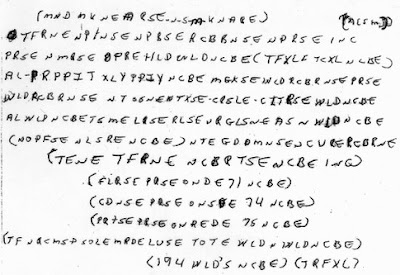 (MND MKNEARSE-N-S-M-KNARE) (ACSM)
TFRNE NPTNSENPBSERCBBNSE NPRSE INC
PRSE NMRSE OPREHLDWLDNCBE (TFXLF TCXL NCBE)
AL-PRPPIT XLYPPIY NCBE MGKSE WLDRCBRNSEPRSE
WLDRCBRNSE NTOSNEWTXSE-CRSLE-CITRSE WLDNCBE
ALWLDNCBETSMELRSERLSEURGLSNEASNWLDNCBE
(NOPFSE NLSRE NCBE) NTEGDDMNSENCURERCBRNE
(TENE TFRNE NCBRTSE NCBE ING)
(FLRSE PRSE ONDE 71 NCBE)
(CDNSE PRSE ONSDE 74 NCBE)
(PRTSE PRSE ONREDE 75 NCBE)
(TFNQCMSPSOLEMRDELUSE TOTE WLDN WLDNCBE)
(194 WLD'S NCBE) (TRFXL)